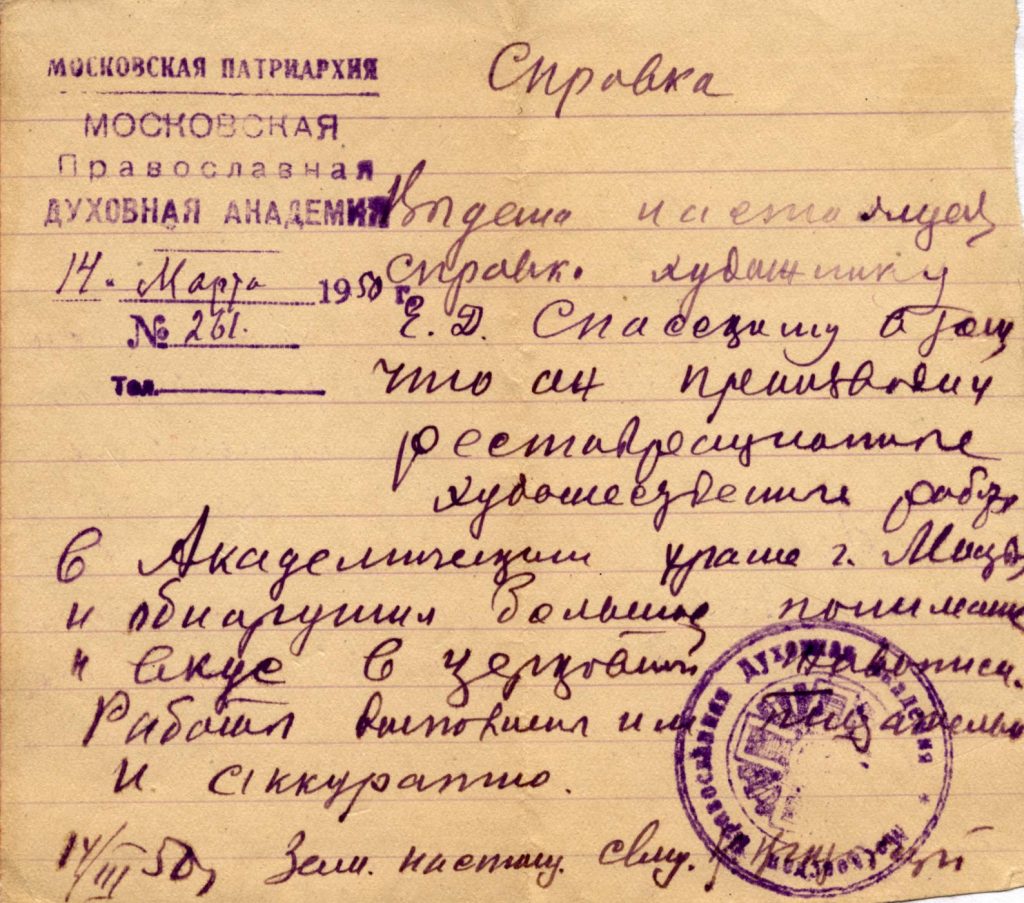 МОСКОВСКАЯ ПАТРИАРХИЯ
МОСКОВСКАЯ
Православная
ДУХОВНАЯ АКАДЕМИЯ
14. Марта 1950 г.
№ 261.
Тел.
Справка
Выдана настоящая
справка художнику
Е. Д. Спасскому в том
что он производил
реставрационные
художественные работы
в Академическом храме г.
и обнаружил большое понимание
и вкус в церковной живописи.
Работы выполнил им тщательно
и аккуратно.
14/III 50, Зам. свящ.
Московская Православная Духовная Академия